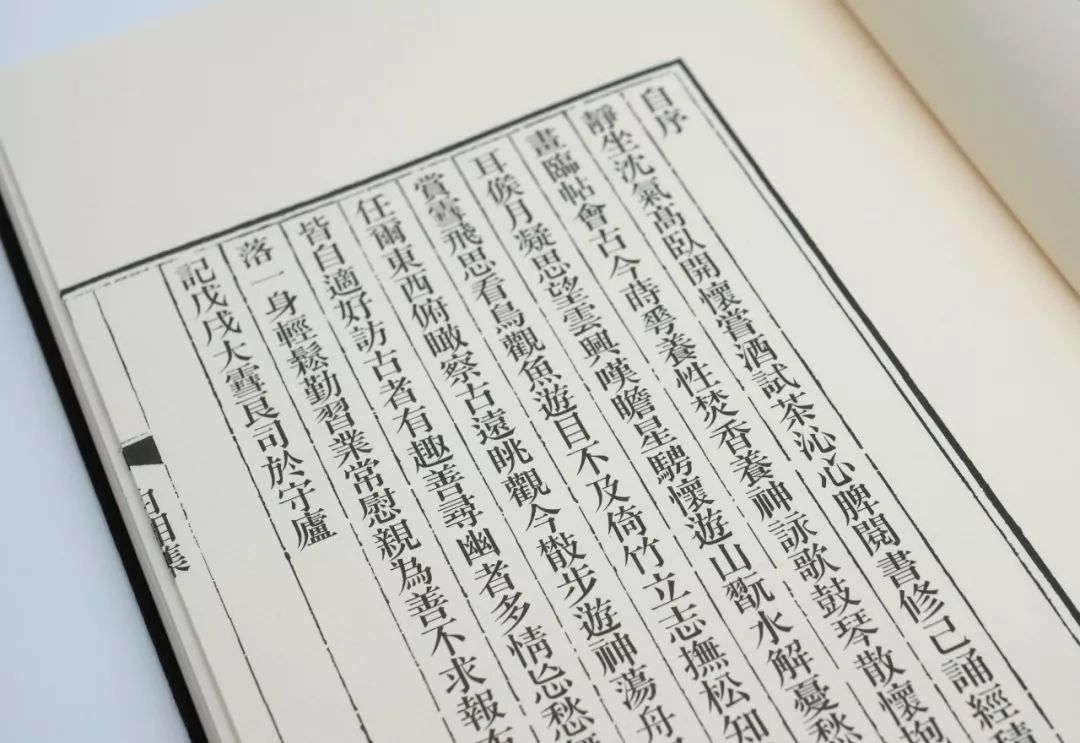 自序
靜坐沈氣高臥開懷嘗酒試茶沁心脾閱書修己誦經
畫臨帖會古今蒔蕚養性焚香養神詠歌鼓琴散懷
耳候月凝思望雲興嘆瞻星騁懷遊山翫水解憂愁
賞雪飛思看鳥觀魚遊目不及倚竹立志撫松知
任爾東西俯瞰察古遠眺觀今散步遊神蕩舟
皆自適好訪古者有趣善尋幽者多情忘愁
落一身輕鬆勤習業常慰親為善不求報
記戊戌大雪艮司於守廬